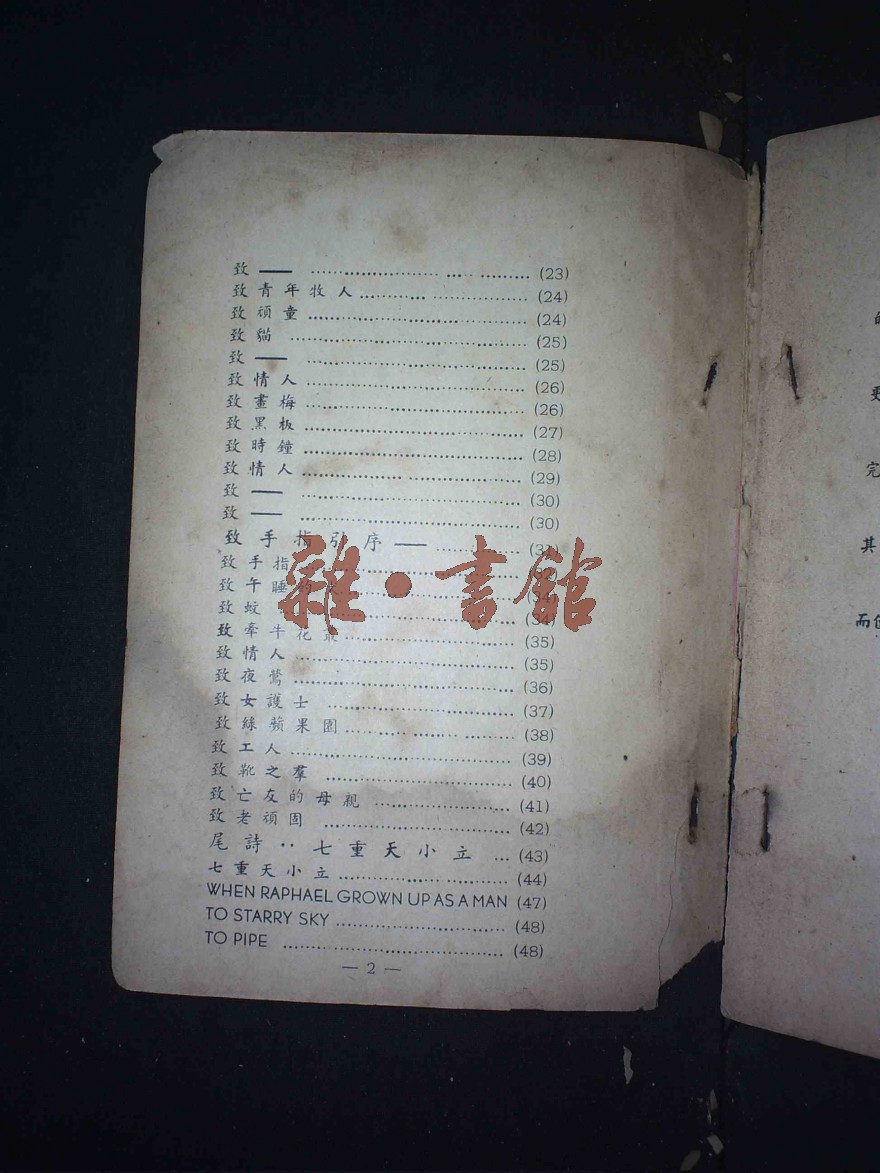 致 —— (23)
致青年牧人 (24)
致頑童 (24)
致貓 (25)
致 —— (25)
致情人 (26)
致畫梅 (26)
致黑板 (27)
致時鐘 (28)
致情人 (29)
致 —— (30)
致 —— (30)
致手指引序 ——
致手指
致午睡
致蚊 (34)
致牽牛花叢 (35)
致情人 (35)
致夜鶯 (36)
致女護士 (37)
致綠蘋果園 (38)
致工人 (39)
致靴之羣 (40)
致亡友的母親 (41)
致老頑固 (42)
尾詩‥七重天小立 (43)
七重天小立 (44)
WHEN RAPHAEL GROWN UP AS A MAN (47)
TO STARRY SKY (48)
TO PIPE (48)
— 2 —
雜·書館
完
其
而